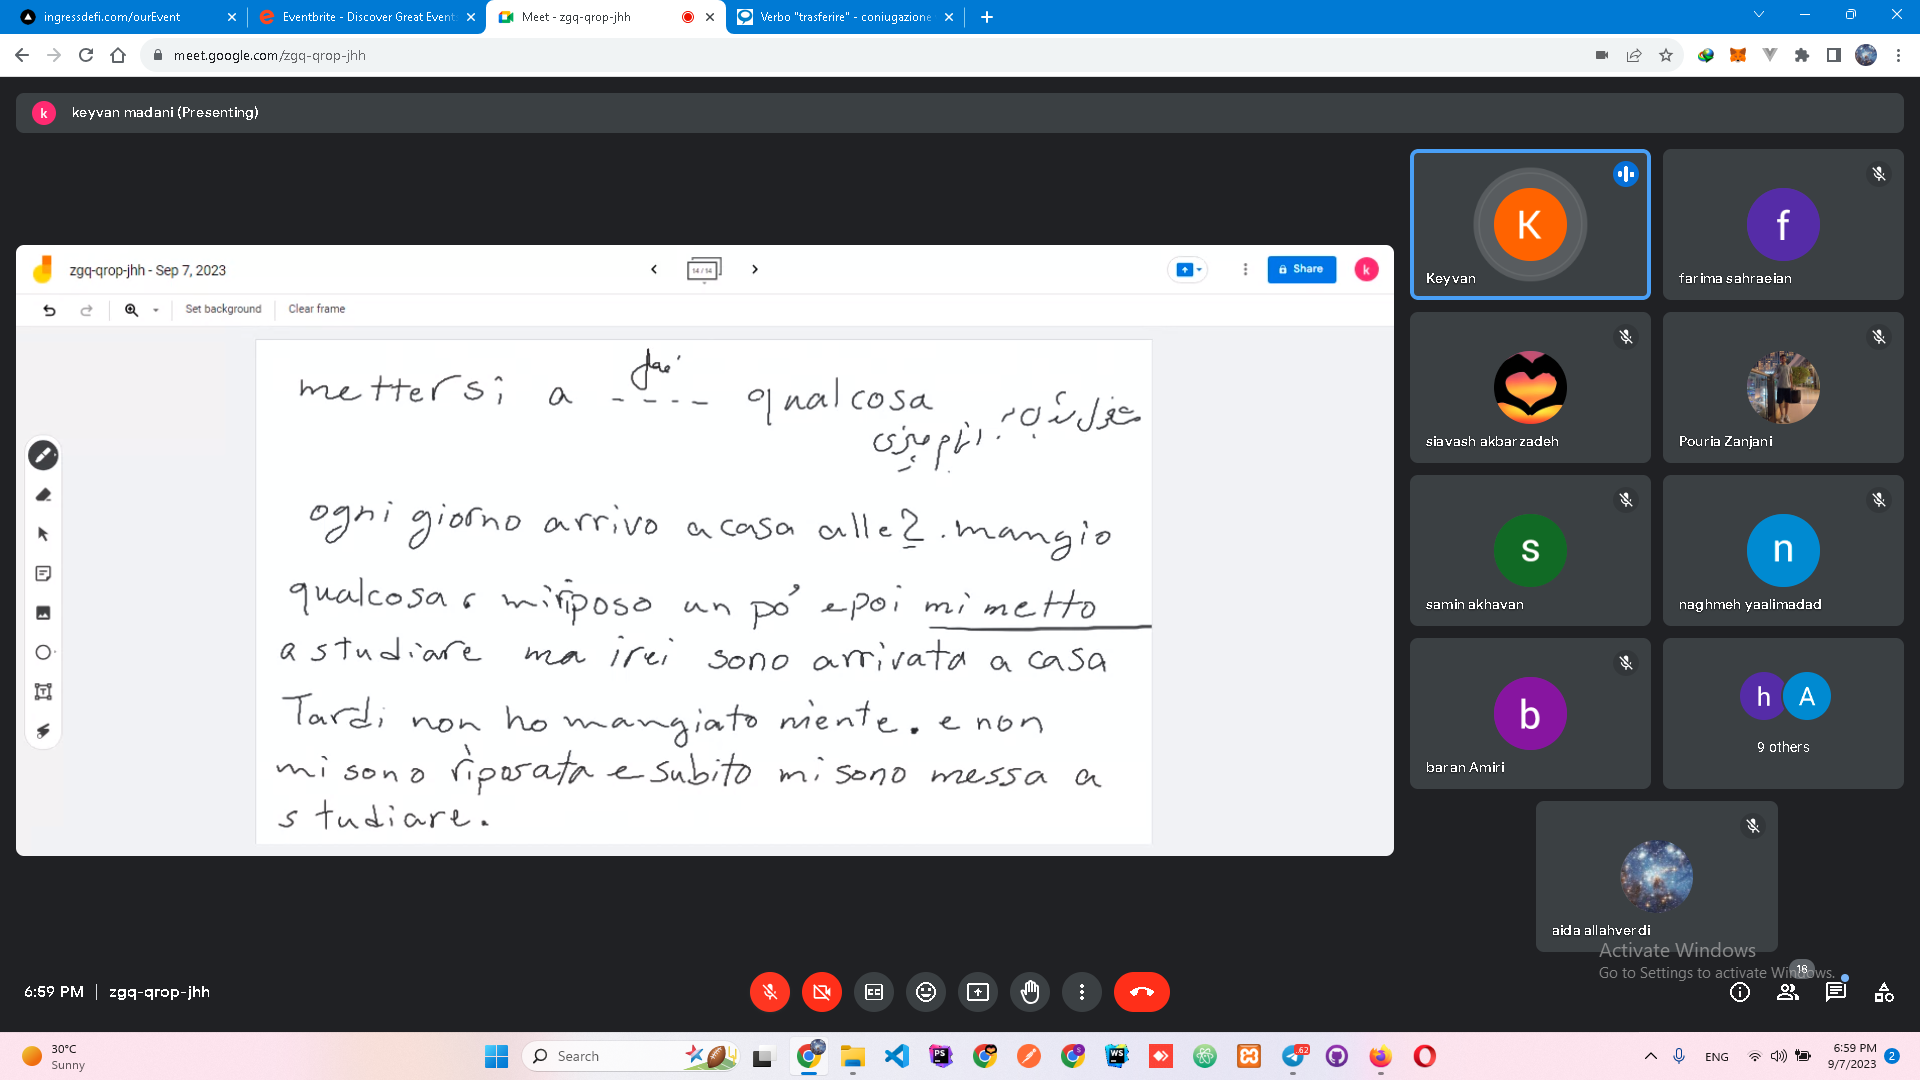 ingressdefi.com/ourEvent
Eventbrite - Discover Great Event
Meet - zgq-qrop-jhh
Verbo "trasferire" - coniugazione
meet.google.com/zgq-qrop-jhh
k
keyvan madani (Presenting)
zgq-qrop-jhh - Sep 7, 2023
14 / 14
Share
k
Set background
Clear frame
فعل
mettersi a ---- qualcosa
مشغول شدن به انجام چیزی
ogni giorno arrivo a casa alle 2 . mangio
qualcosa, mi riposo un po' e poi mi metto
a studiare ma irei sono arrivata a casa
Tardi non ho mangiato niente. e non
mi sono riposata e subito mi sono messa a
studiare.
K
Keyvan
f
farima sahraeian
siavash akbarzadeh
Pouria Zanjani
s
samin akhavan
n
naghmeh yaalimadad
b
baran Amiri
h A
9 others
aida allahverdi
Activate Windows
Go to Settings to activate Windows.
6:59 PM | zgq-qrop-jhh
18
30°C
Sunny
Search
PS
WS
62
ENG
6:59 PM
9/7/2023
2